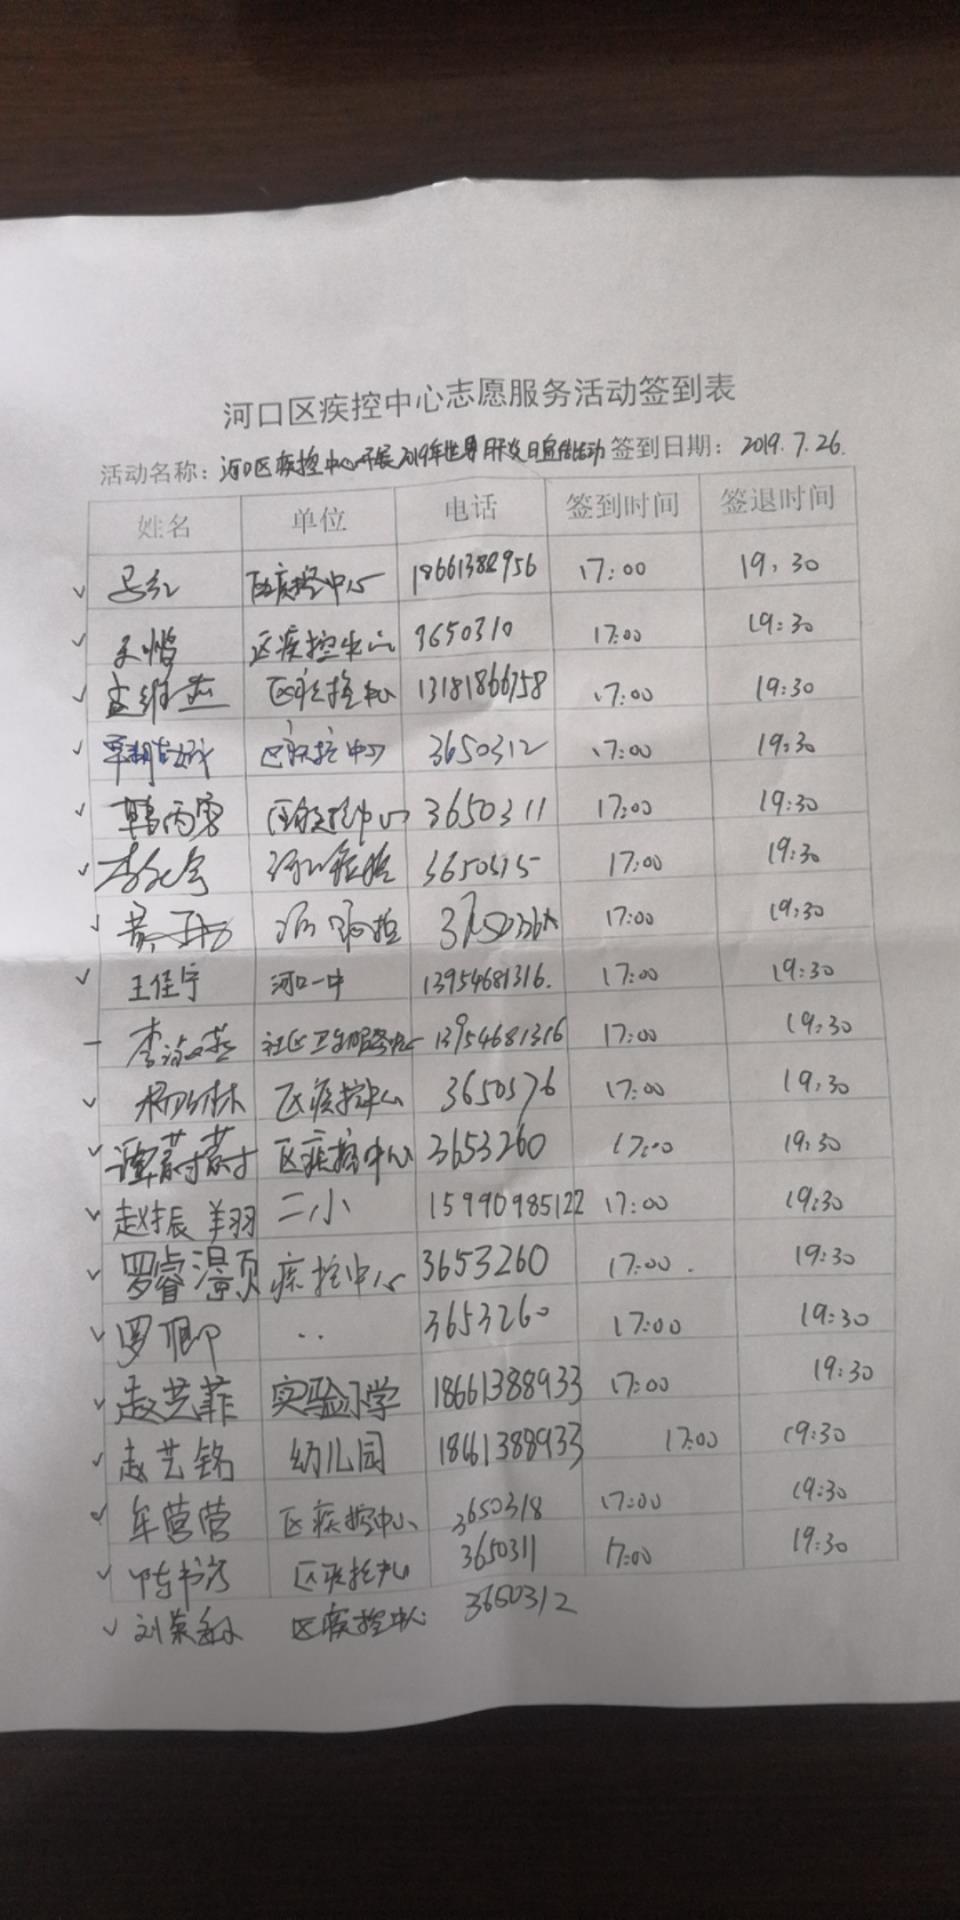 河口区疾控中心志愿服务活动签到表
活动名称：河口区疾控中心开展2019年世界肝炎日宣传活动 签到日期：2019.7.26.
姓名 单位 电话 签到时间 签退时间
区疾控中心 17:00 19:30
区疾控中心 3650310 17:00 19:30
区疾控中心 13181866758 17:00 19:30
区疾控中心 3650312 17:00 19:30
韩丙勇 区疾控中心 3650311 17:00 19:30
河口疾控 3650315 17:00 19:30
17:00 19:30
王佳宁 河口一中 13954681316. 17:00 19:30
社区卫生服务中心 13954681316 17:00 19:30
区疾控中心 3650376 17:00 19:30
谭蔚蔚 区疾控中心 3653260 17:00 19:30
赵振翔羽 二小 15990985122 17:00 19:30
罗睿灏 疾控中心 3653260 17:00. 19:30
罗卿 .. 3653260 17:00 19:30
赵艺菲 实验小学 18661388933 17:00 19:30
赵艺铭 幼儿园 18661388933 17:00 19:30
牟营营 区疾控中心 3650318 17:00 19:30
区疾控中心 3650311 17:00 19:30
区疾控中心 3650312